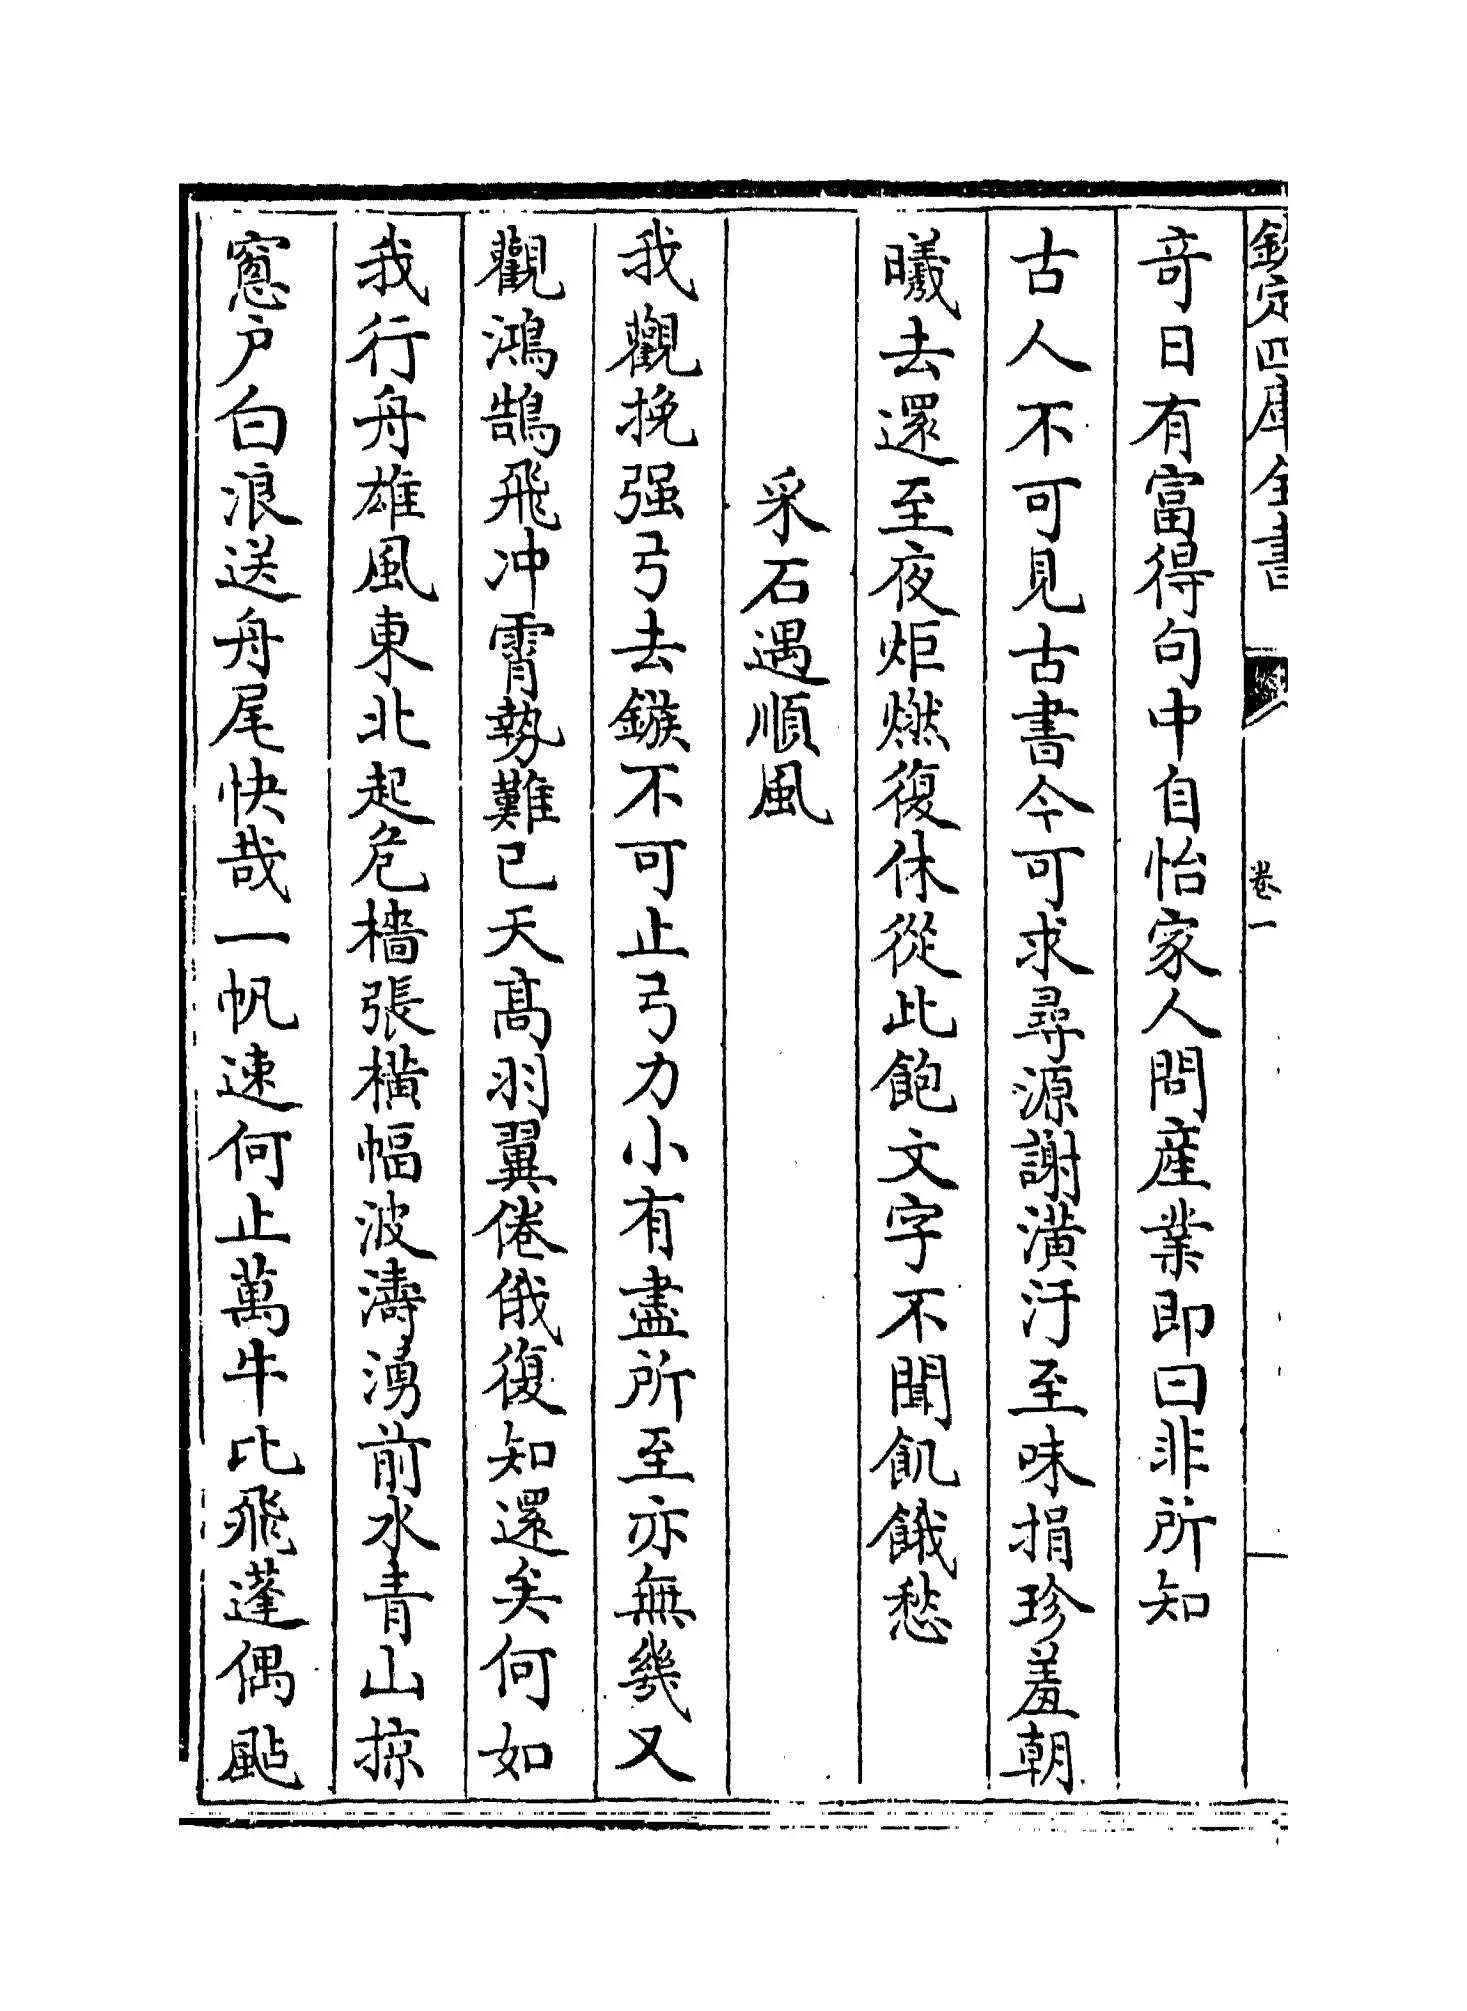 欽定四庫全書
卷一
奇日有富得句中自怡家人問産業即曰非所知
古人不可見古書今可求尋源謝潢汙至味捐珍羞朝
曦去還至夜炬燃復休從此飽文字不聞飢餓愁
采石遇順風
我觀挽强弓去鏃不可止弓力小有盡所至亦無幾又
觀鴻鵠飛冲霄勢難已天高羽翼倦俄復知還矣何如
我行舟雄風東北起危檣張橫幅波濤湧前水青山掠
窻户白浪送舟尾快哉一帆速何止萬牛比飛蓬偶颭